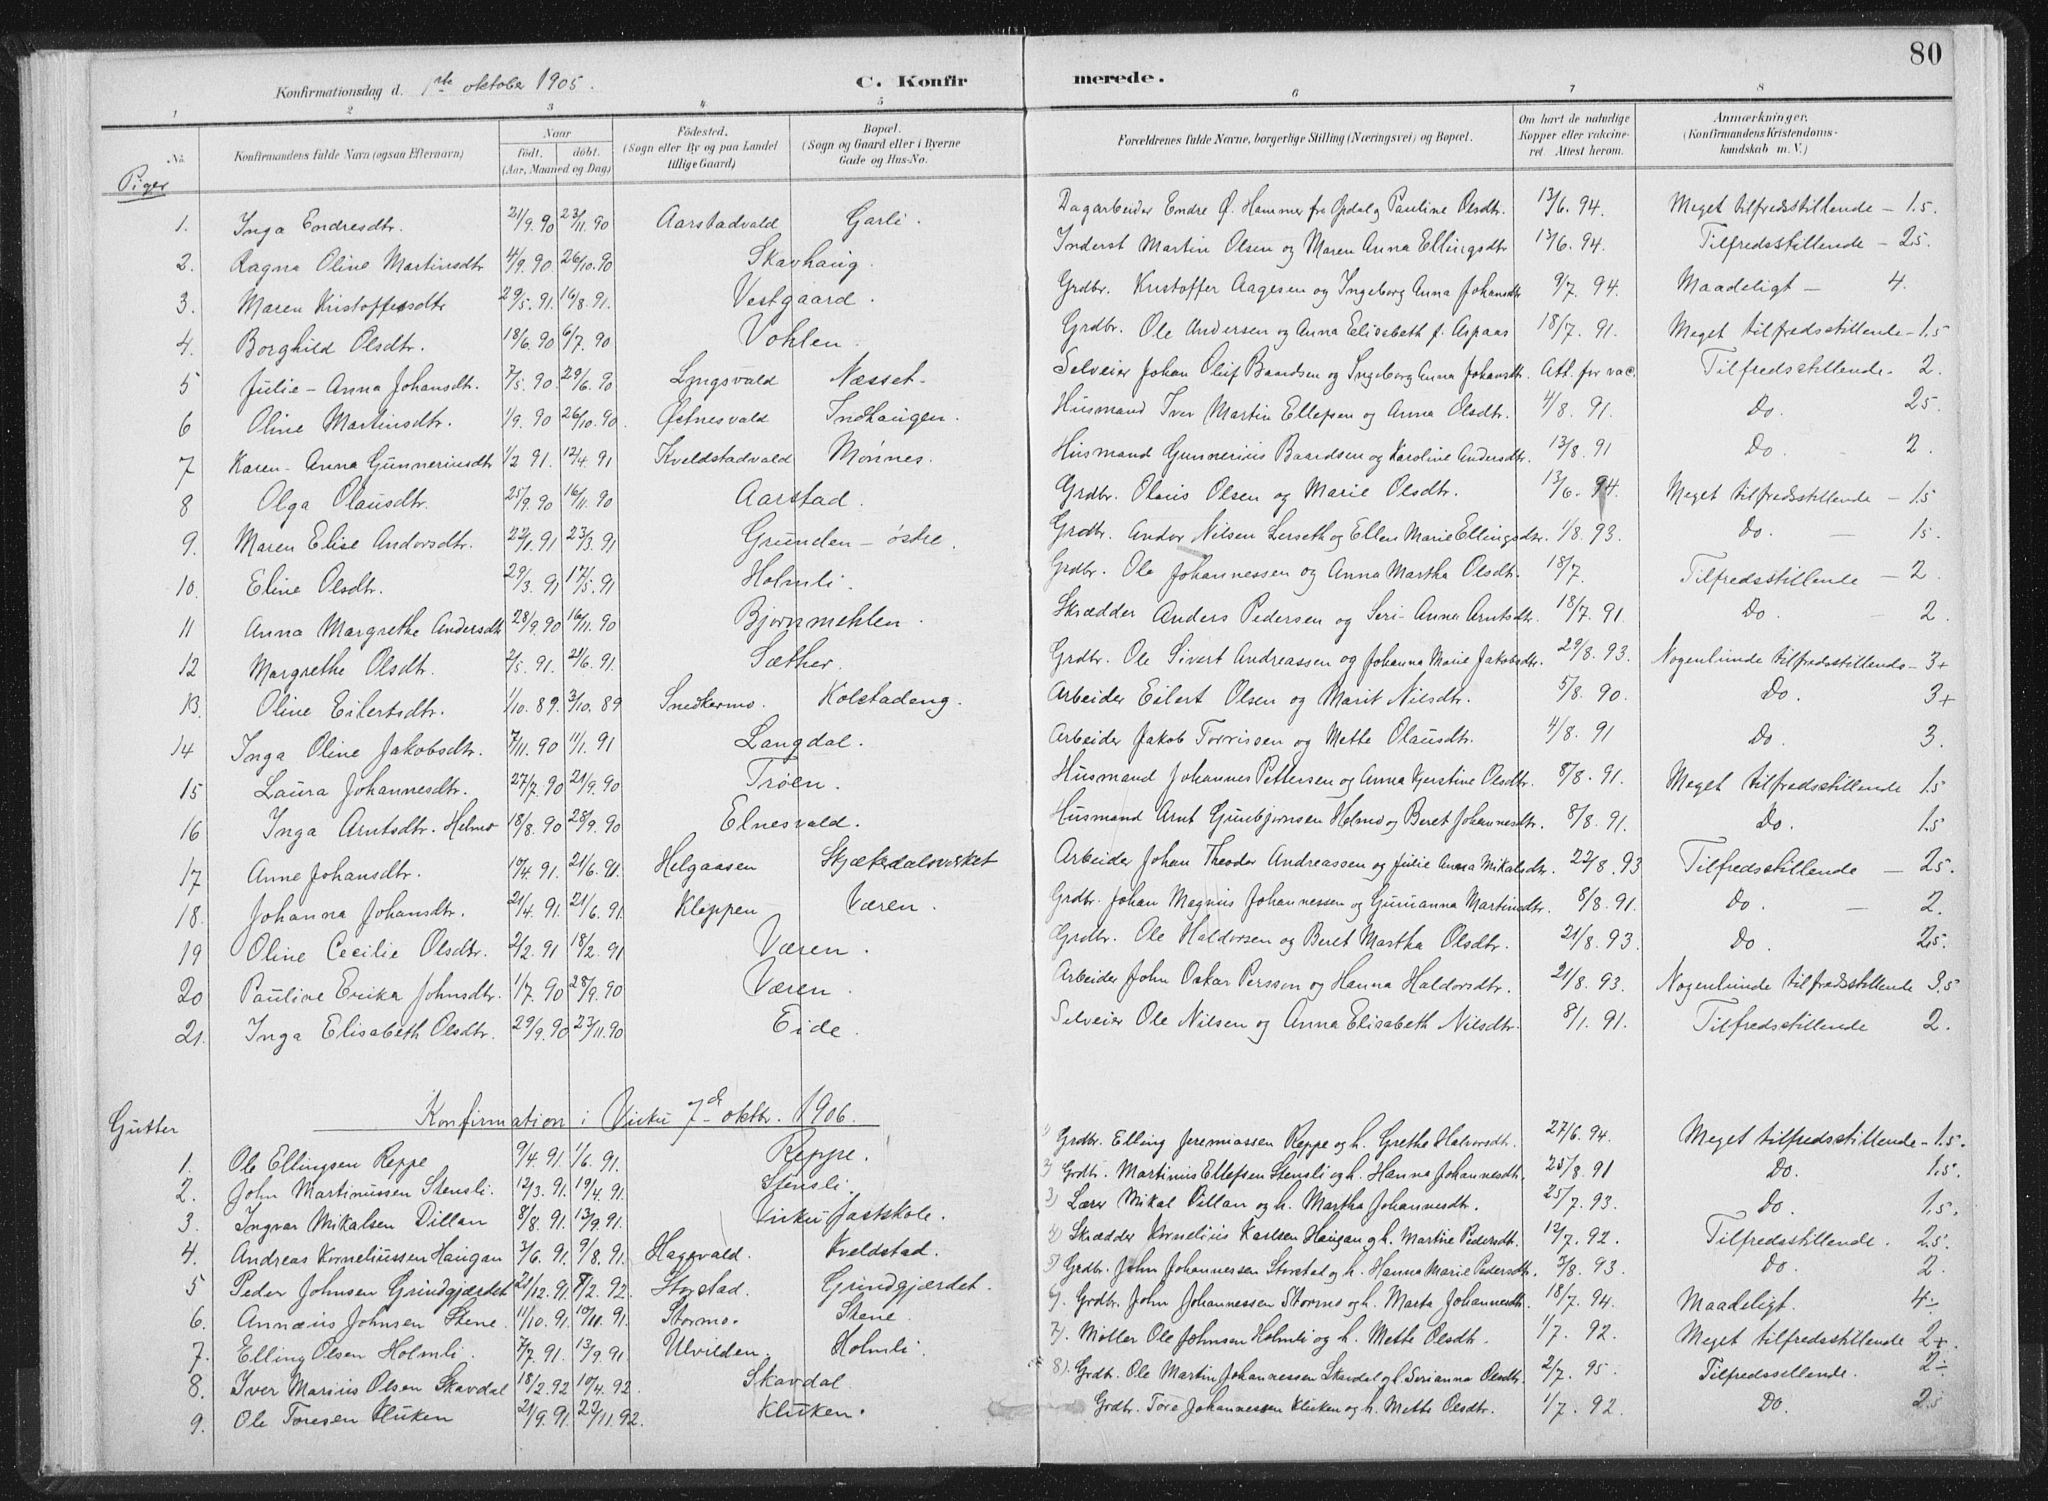 80
Konfirmationsdag d. 1ste oktober 1905. C. Konfirmerede.
1 2 3 4 5 6 7 8
No. Konfirmandens fulde Navn (ogsaa Efternavn) Naar født. døbt. (Aar, Maaned og Dag) Fødested. (Sogn eller By og paa Landet tillige Gaard) Bopæl. (Sogn og Gaard eller i Byerne Gade og Hus-No. Forældrenes fulde Navne, borgerlige Stilling (Næringsvei) og Bopæl. Om havt de naturlige Kopper eller vakcineret. Attest herom. Anmærkninger. (Konfirmandens Kristendomskundskab m. V.)
Piger
1. Inga Endresdtr. 21/9. 90 23/11. 90 Aarstadvald Garli. Dagarbeider Endre Ø. Hammer fra Opdal og Pauline Olsdtr. 13/6. 94. Meget tilfredsstillende – 1.5.
2. Ragna Oline Martinsdtr 4/9. 90 26/10. 90 Skavhaug. Inderst Martin Olsen og Maren Anna Ellingsdtr 13/6. 94. Tilfredsstillende – 2.5.
3. Maren Kristoffersdtr 29/5. 91. 16/8. 91. Vestgaard. Grdbr. Kristoffer Aagesen og Ingeborg Anna Johansdtr 9/7. 94. Maadeligt – 4.
4. Borghild Olsdtr. 18/6. 90 6/7. 90 Vohlen. Grdbr. Ole Andersen og Anna Elisabeth f. Aspaas 18/7. 91. Meget tilfredsstillende – 1.5
5 Julie-Anna Johansdtr. 7/5. 90 29/6. 90 Lyngsvald Næsset. Selveier Johan Oluf Baardsen og Ingeborg Anna Johansdtr. Att. for vac. Tilfredsstillende. 2.
6 Oline Martinsdtr. 1/9. 90 26/10. 90. Østnesvald Indhaugen. Husmand Iver Martin Ellefsen og Anna Olsdtr. 4/8. 91. Do. 2.5.
7 Karen-Anna Gunneriusdtr 1/2 91. 12/4. 91 Kveldstadvald Mönnes. Husmand Gunnerius Baardsen og Karoline Andersdtr. 13/8. 91 Do. 2.
8 Olga Olausdtr. 25/9. 90 16/11. 90 Aarstad. Grdbr. Olaus Olsen og Marie Olsdtr. 13/6. 94. Meget tilfredsstillende – 1.5
9. Maren Elise Andorsdtr. 22/1. 91 23/3. 91 Grunden – østre. Grdbr. Andor Nilsen Lerseth og Ellen Marie Ellingsdtr. 1/8. 93. Do. – 1.5.
10. Eline Olsdtr. 29/3. 91 17/5. 91 Holmli. Grdbr. Ole Johannessen og Anna Martha Olsdtr. 18/7. Tilfredsstillende – 2.
11 Anna Margrethe Andersdtr 28/9. 90 16/11. 90 Bjørnmehlen. Skrædder Anders Pedersen og Seri-Anna Arntsdtr. 18/7. 91. Do. – 2.
12 Margrethe Olsdtr. 2/5. 91. 21/6. 91. Sæther. Grdbr. Ole Sivert Andreassen og Johanna Marie Jakobsdtr. 29/8. 93. Nogenlunde tilfredsstillende – 3+
13. Oline Eilertsdtr. 1/10. 89. 3/10. 89 Snedkermo. Kolstadeng. Arbeider Eilert Olsen og Marit Nilsdtr. 5/8. 90. Do. 3+
14 Inga Oline Jakobsdtr. 7/11. 90 11/1. 91 Langdal. Arbeider Jakob Torrissen og Mette Olausdtr. 4/8. 91 Do. 3.
15 Laura Johannesdtr. 27/7. 90 21/9. 90 Trøen. Husmand Johannes Pettersen og Anna Kjerstine Olsdtr. 8/8. 91. Meget tilfredsstillende 1.5
16 Inga Arntsdtr. Helmo 18/8. 90 28/9. 90 Elnesvald. Husmand Arnt Gunbjørnsen Helmo og Beret Johannesdtr. 8/8. 91. Do. 1.5
17 Anne Johansdtr. 10/4. 91. 21/6. 91. Helgaasen Skjækerdalsverket Arbeider Johan Theodor Andreassen og Julie Anna Mikalsdtr. 22/8. 93 Tilfredsstillende – 2.5.
18. Johanna Johansdtr. 21/4. 91. 21/6. 91. Kleppen Væren. Grdbr. Johan Magnus Johannessen og Gurianna Martinsdtr. 8/8. 91. Do. – 2.
19 Oline Cecilie Olsdtr. 2/2. 91 18/2. 91 Væren. Grdbr. Ole Haldorsen og Beret Martha Olsdtr. 21/8. 93. Do. 2.5.
20 Pauline Erika Johnsdtr. 1/7. 90 28/9. 90 Væren. Arbeider John Oskar Persson og Hanna Haldorsdtr. 21/8. 93. Nogenlunde tilfredsstillende 3.5
21. Inga Elisabeth Olsdtr. 29/9. 90 23/11. 90 Eide. Selveier Ole Nilsen og Anna Elisabeth Nilsdtr. 8/1. 91. Tilfredsstillende 2.
Konfirmation i Vuku 7d oktbr. 1906.
Gutter
1. Ole Ellingsen Reppe 9/4. 91. 1/6. 91. Reppe. 1) Grdbr. Elling Jeremiassen Reppe og h. Grethe Halvorsdtr. 27/6. 94. Meget tilfredsstillende – 1.5.
2. John Martinussen Stensli. 12/3. 91. 19/4. 91. Stensli. 2) Grdbr. Martinus Ellefsen Stensli og h. Hanna Johannesdtr. 25/8. 91 Do. 1.5.
3. Ingvar Mikalsen Dillan 8/8. 91. 13/9. 91. Vuku fastskole. 3) Lærer Mikal Dillan og h. Martha Johannesdtr. 25/7. 93. Do. 1.5.
4. Andreas Korneliussen Haugan 3/6. 91. 9/8. 91. Hagavald. Kveldstad. 4) Skrædder Kornelius Karlsen Haugan og h. Martine Pedersdtr. 12/7. 92. Tilfredsstillende. 2.5.
5 Peder Johnsen Grindgjærdet 21/12. 91. 7/2. 92. Storstad. Grindgjærdet. 5) Grdbr. John Johannessen Storstad og h. Hanna Marie Pedersdtr. 3/8. 93. Do. 2.
6. Annæus Johnsen Stene. 11/10. 91. 10/11. 91. Stormo. Stene. Grdbr. John Johannessen Stormo og h. Marta Johannesdtr. 18/7. 94. Maadeligt. 4÷
7. Elling Olsen Holmli. 7/7. 91. 13/9. 91. Ulvilden. Holmli. 7). Møller Ole Johnsen Holmli og h. Mette Olsdtr. 1/7. 92. Meget tilfredsstillende 2+.
8. Iver Marius Olsen Skavdal 18/2. 92 10/4. 92. Skavdal. 8). Grdbr. Ole Martin Johannessen Skavdal og h. Serianna Olsdtr. 2/7. 95. Tilfredssellende. 2÷
9. Ole Toresen Kluken 21/9. 91. 22/11. 92. Kluken. Grdbr. Tore Johannessen Kluken og h. Mette Olsdtr. 1/7. 92. Do. 2.5